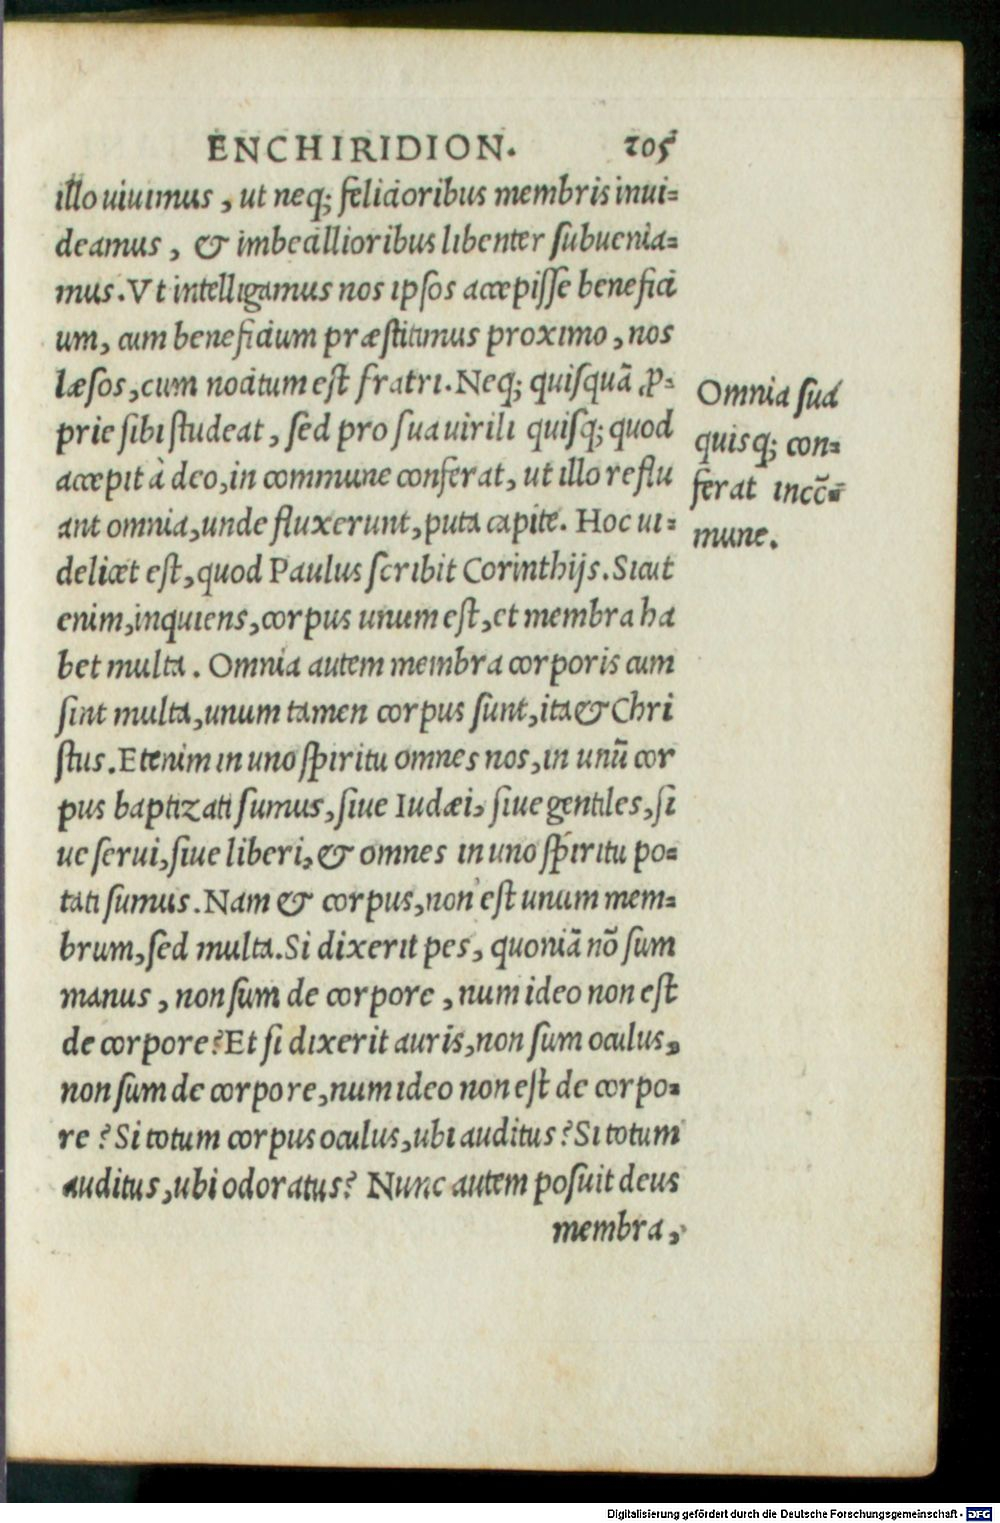 ENCHIRIDION. 205
illo uiuimus, ut neq; felicioribus membris inui=
deamus, & imbecillioribus libenter subuenia=
mus. Vt intelligamus nos ipsos accepisse benefici
um, cum beneficium præstitimus proximo, nos
læsos, cum nocitum est fratri. Neq; quisquā ꝓ=
prie sibi studeat, sed pro sua uirili quisq; quod
accepit à deo, in commune conferat, ut illo reflu
ant omnia, unde fluxerunt, puta capite. Hoc ui=
delicet est, quod Paulus scribit Corinthijs. Sicut
enim, inquiens, corpus unum est, et membra ha
bet multa. Omnia autem membra corporis cum
sint multa, unum tamen corpus sunt, ita & Chri
stus. Etenim in uno spiritu omnes nos, in unū cor
pus baptizati sumus, siue Iudæi, siue gentiles, si
ue serui, siue liberi, & omnes in uno spiritu po=
tati sumus. Nam & corpus, non est unum mem=
brum, sed multa. Si dixerit pes, quoniā nō sum
manus, non sum de corpore, num ideo non est
de corpore? Et si dixerit auris, non sum oculus,
non sum de corpore, num ideo non est de corpo=
re? Si totum corpus oculus, ubi auditus? Si totum
auditus, ubi odoratus? Nunc autem posuit deus
membra,
Omnia sua
quisq; con=
ferat incō=
mune.
Digitalisierung gefördert durch die Deutsche Forschungsgemeinschaft - DFG